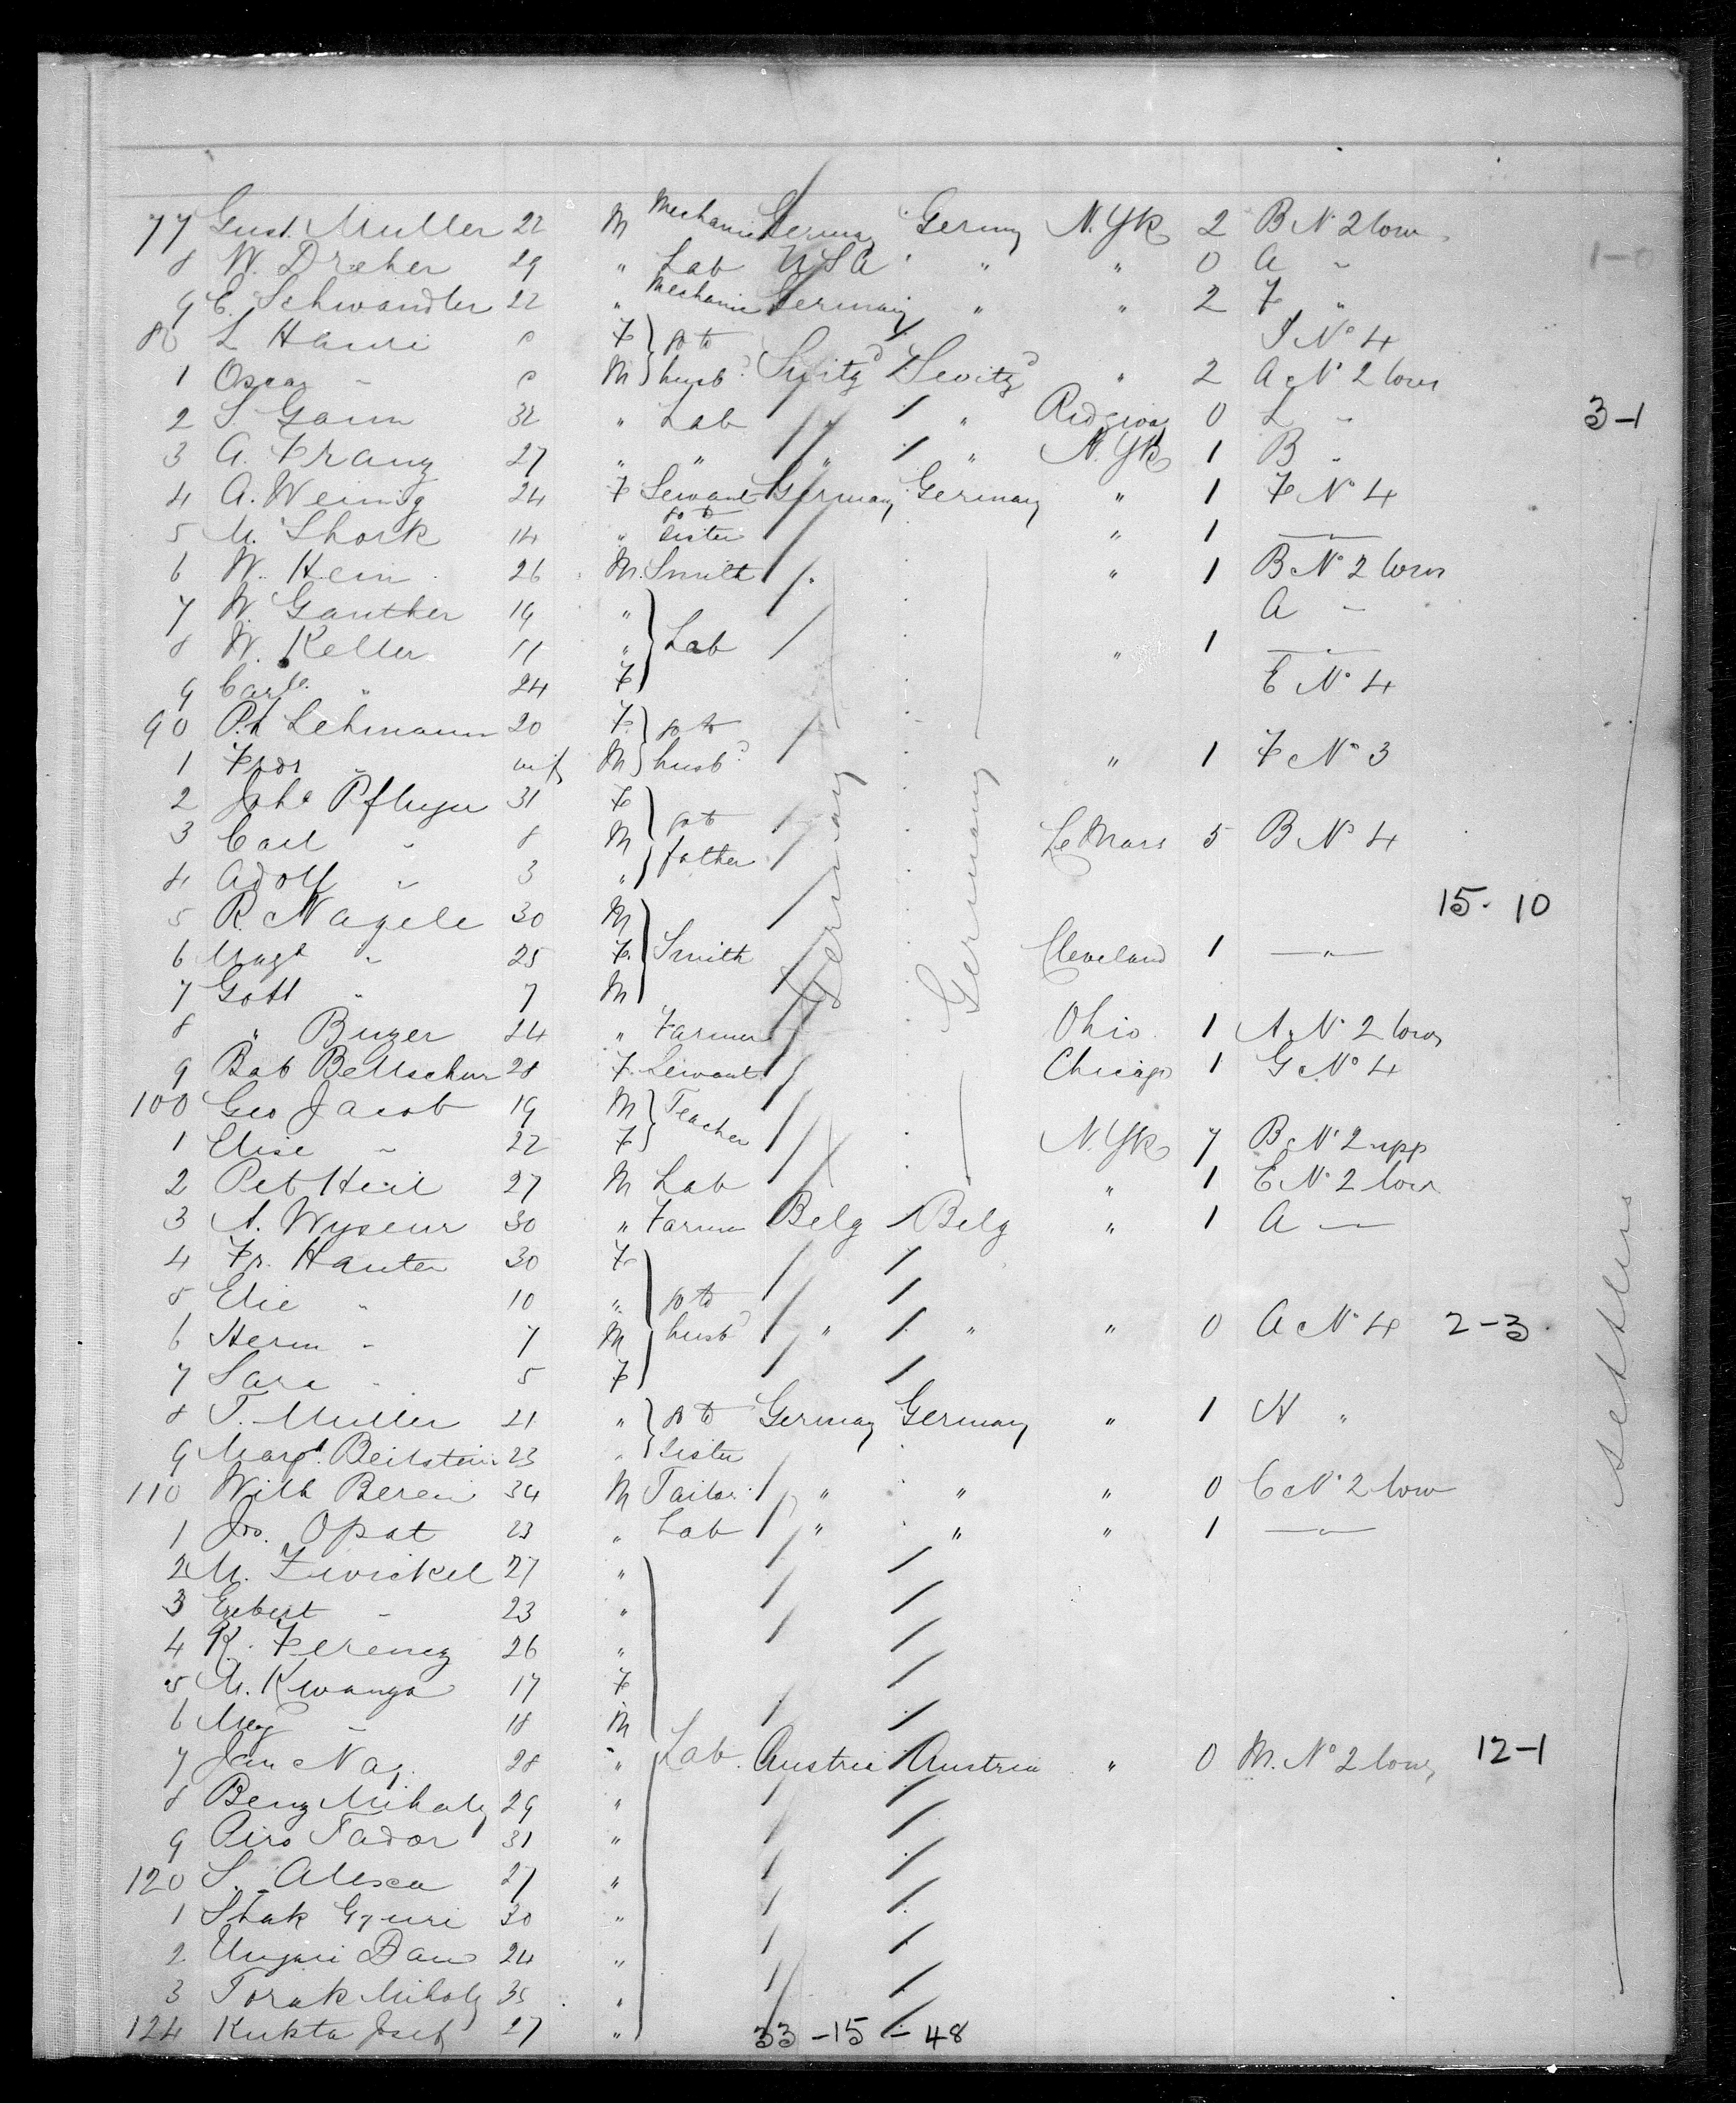 77 Gust. Muller 22 M Mechanic Germy Germy N.Yk 2 B No 2 low
8 W. Dreher 29 " Lab USA " " 0 A "
1-0
9 E. Schwandler 22 " Mechanic Germany " " 2 F "
80 L Hauri F } go to I No 4
1 Oscar " M } husb d Switzd Switzd " 2 A No 2 lower
2 S. Gann 32 " Lab " " Ridgway 0 L "
3-1
3 A. Franz 27 " " " " N.Yk 1 B "
4 A. Weinig 24 F Servant Germany Germany " 1 F No 4
5 M. Shork 14 " go to sister " 1 — " —
6 W. Hein 26 M. Smith " 1 B No 2 lower
7 W. Ganther 19 " } A "
8 W. Keller " } Lab " 1 — " —
9 Carle " 24 F } E No 4
90 Ph Lehmann 20 F } go to
1 Frdr " inf M } husbd " 1 F No 3
2 Joha Pfluger 31 F }
3 Carl " 8 M } go to father Le Mars 5 B No 4
4 Adolf " 3 " }
15 - 10
5 R. Nagele 30 M }
6 Magd " 25 F } Smith Cleveland 1 — " —
7 Gott " 7 M }
Germany Germany
8 " Buzer 24 " Farmer Ohio 1 A No 2 lower
9 Bab Beltschur 28 F. Servant Chicago 1 G No 4
100 Geo Jacob 19 M } Teacher
1 Elise " 22 F } N.Yk 7 B No 2 upp
2 Pet Heil 27 M Lab " 1 E No 2 lower
3 A. Wyseur 30 " Farmer Belg Belg " 1 A "
4 Fr. Hanter 30 F }
5 Elie " 10 " } go to
6 Herm " 7 M } husbd " " " 0 A No 4 2-3
7 Sara " 5 F }
8 T. Muller 21 " } go to Germany Germany " 1 H "
9 Margt. Beilstein 23 " } sister
110 Wilh Berein 34 M Tailor " " " 0 C No 2 low
1 Jos. Opat 23 " Lab " " " 1 — " —
2 M. Zwickel 27 "
3 Egbert " 23 "
4 K. Ferency 26 "
5 M. Kwanga 17 F
6 Meg " 18 M
7 Jan Nag. 28 " Lab. Austria Austria " 0 M. No 2 lower 12-1
8 Benz Mihaly 29 "
9 Piro Tador 31 "
120 S. Alesca 27 "
1 Stak Gyuri 30 "
2 Ungari Dan 24 "
3 Torak Mihaly 35 "
124 Kukta Josef 27 "
33 - 15 - 48
settlers